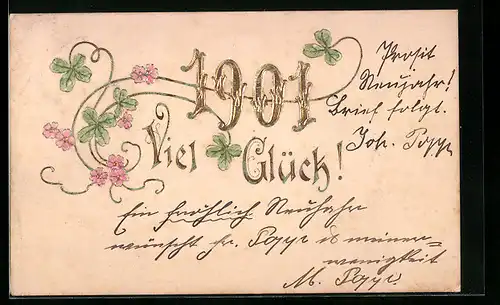 1901
Viel Glück!
Prosit
Neujahr!
Brief folgt.
Joh. Popp
Ein fröhlich Neujahr
wünscht Fr. Popp & meiner=
wenigkeit
M. Popp